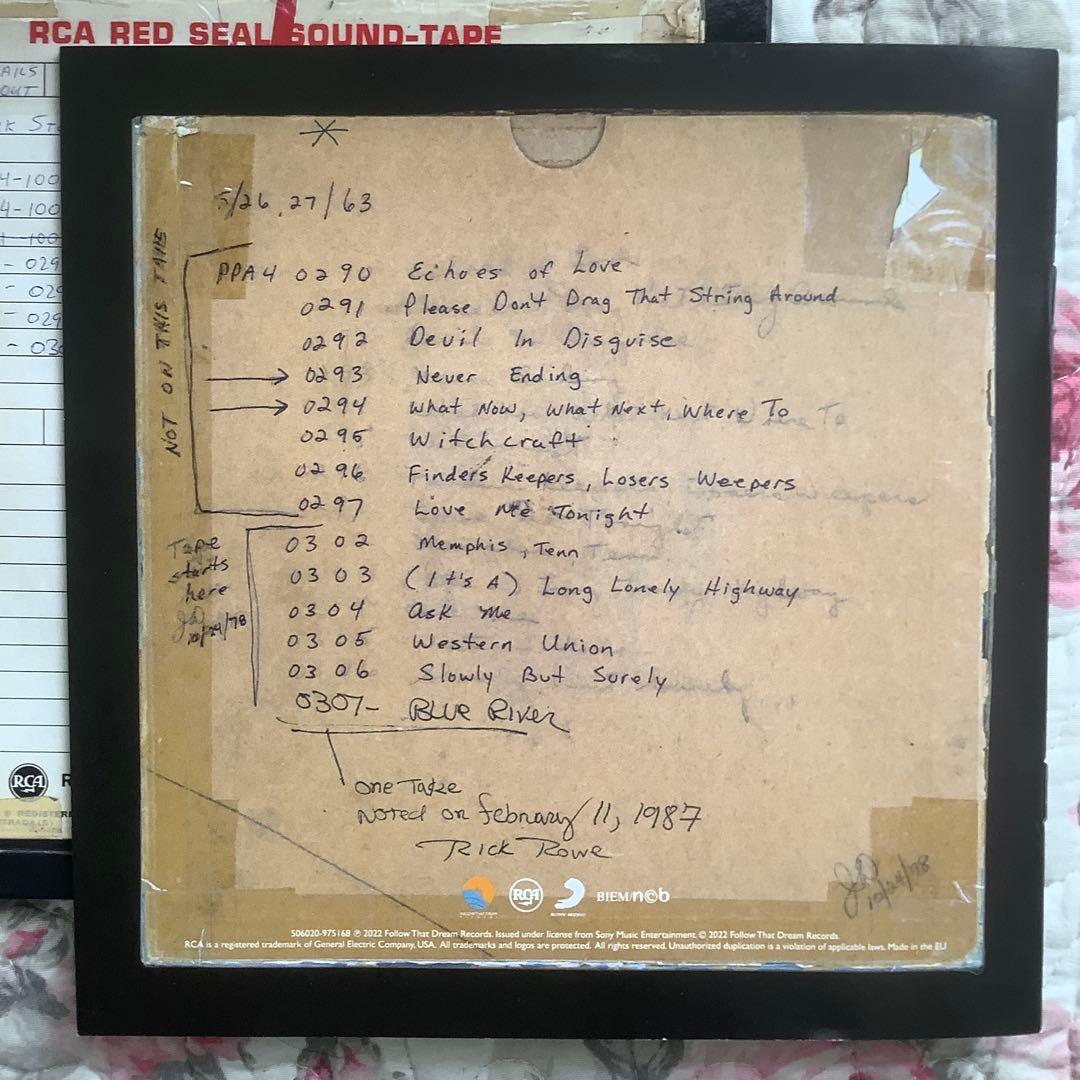 RCA RED SEAL SOUND-TAPE
AILS
OUT
4-100
4-100
- 029
- 029
- 03
RCA
*
5/26, 27/63
NOT ON THIS TAPE
PPA4 0290 Echoes of Love
0291 Please Don't Drag That String Around
0292 Devil In Disguise
→ 0293 Never Ending
→ 0294 What Now, What Next, Where To
0295 Witchcraft
0296 Finders Keepers, Losers Weepers
0297 Love Me Tonight
Tape starts here
10/24/78
0302 Memphis, Tenn
0303 (It's A) Long Lonely Highway
0304 Ask Me
0305 Western Union
0306 Slowly But Surely
0307- BLUE RIVER
one Take
Noted on february 11, 1987
Rick Rowe
10/24/78
RCA BIEM/n©b
506020-975168 ℗ 2022 Follow That Dream Records. Issued under license from Sony Music Entertainment. © 2022 Follow That Dream Records.
RCA is a registered trademark of General Electric Company, USA. All trademarks and logos are protected. All rights reserved. Unauthorized duplication is a violation of applicable laws. Made in the EU